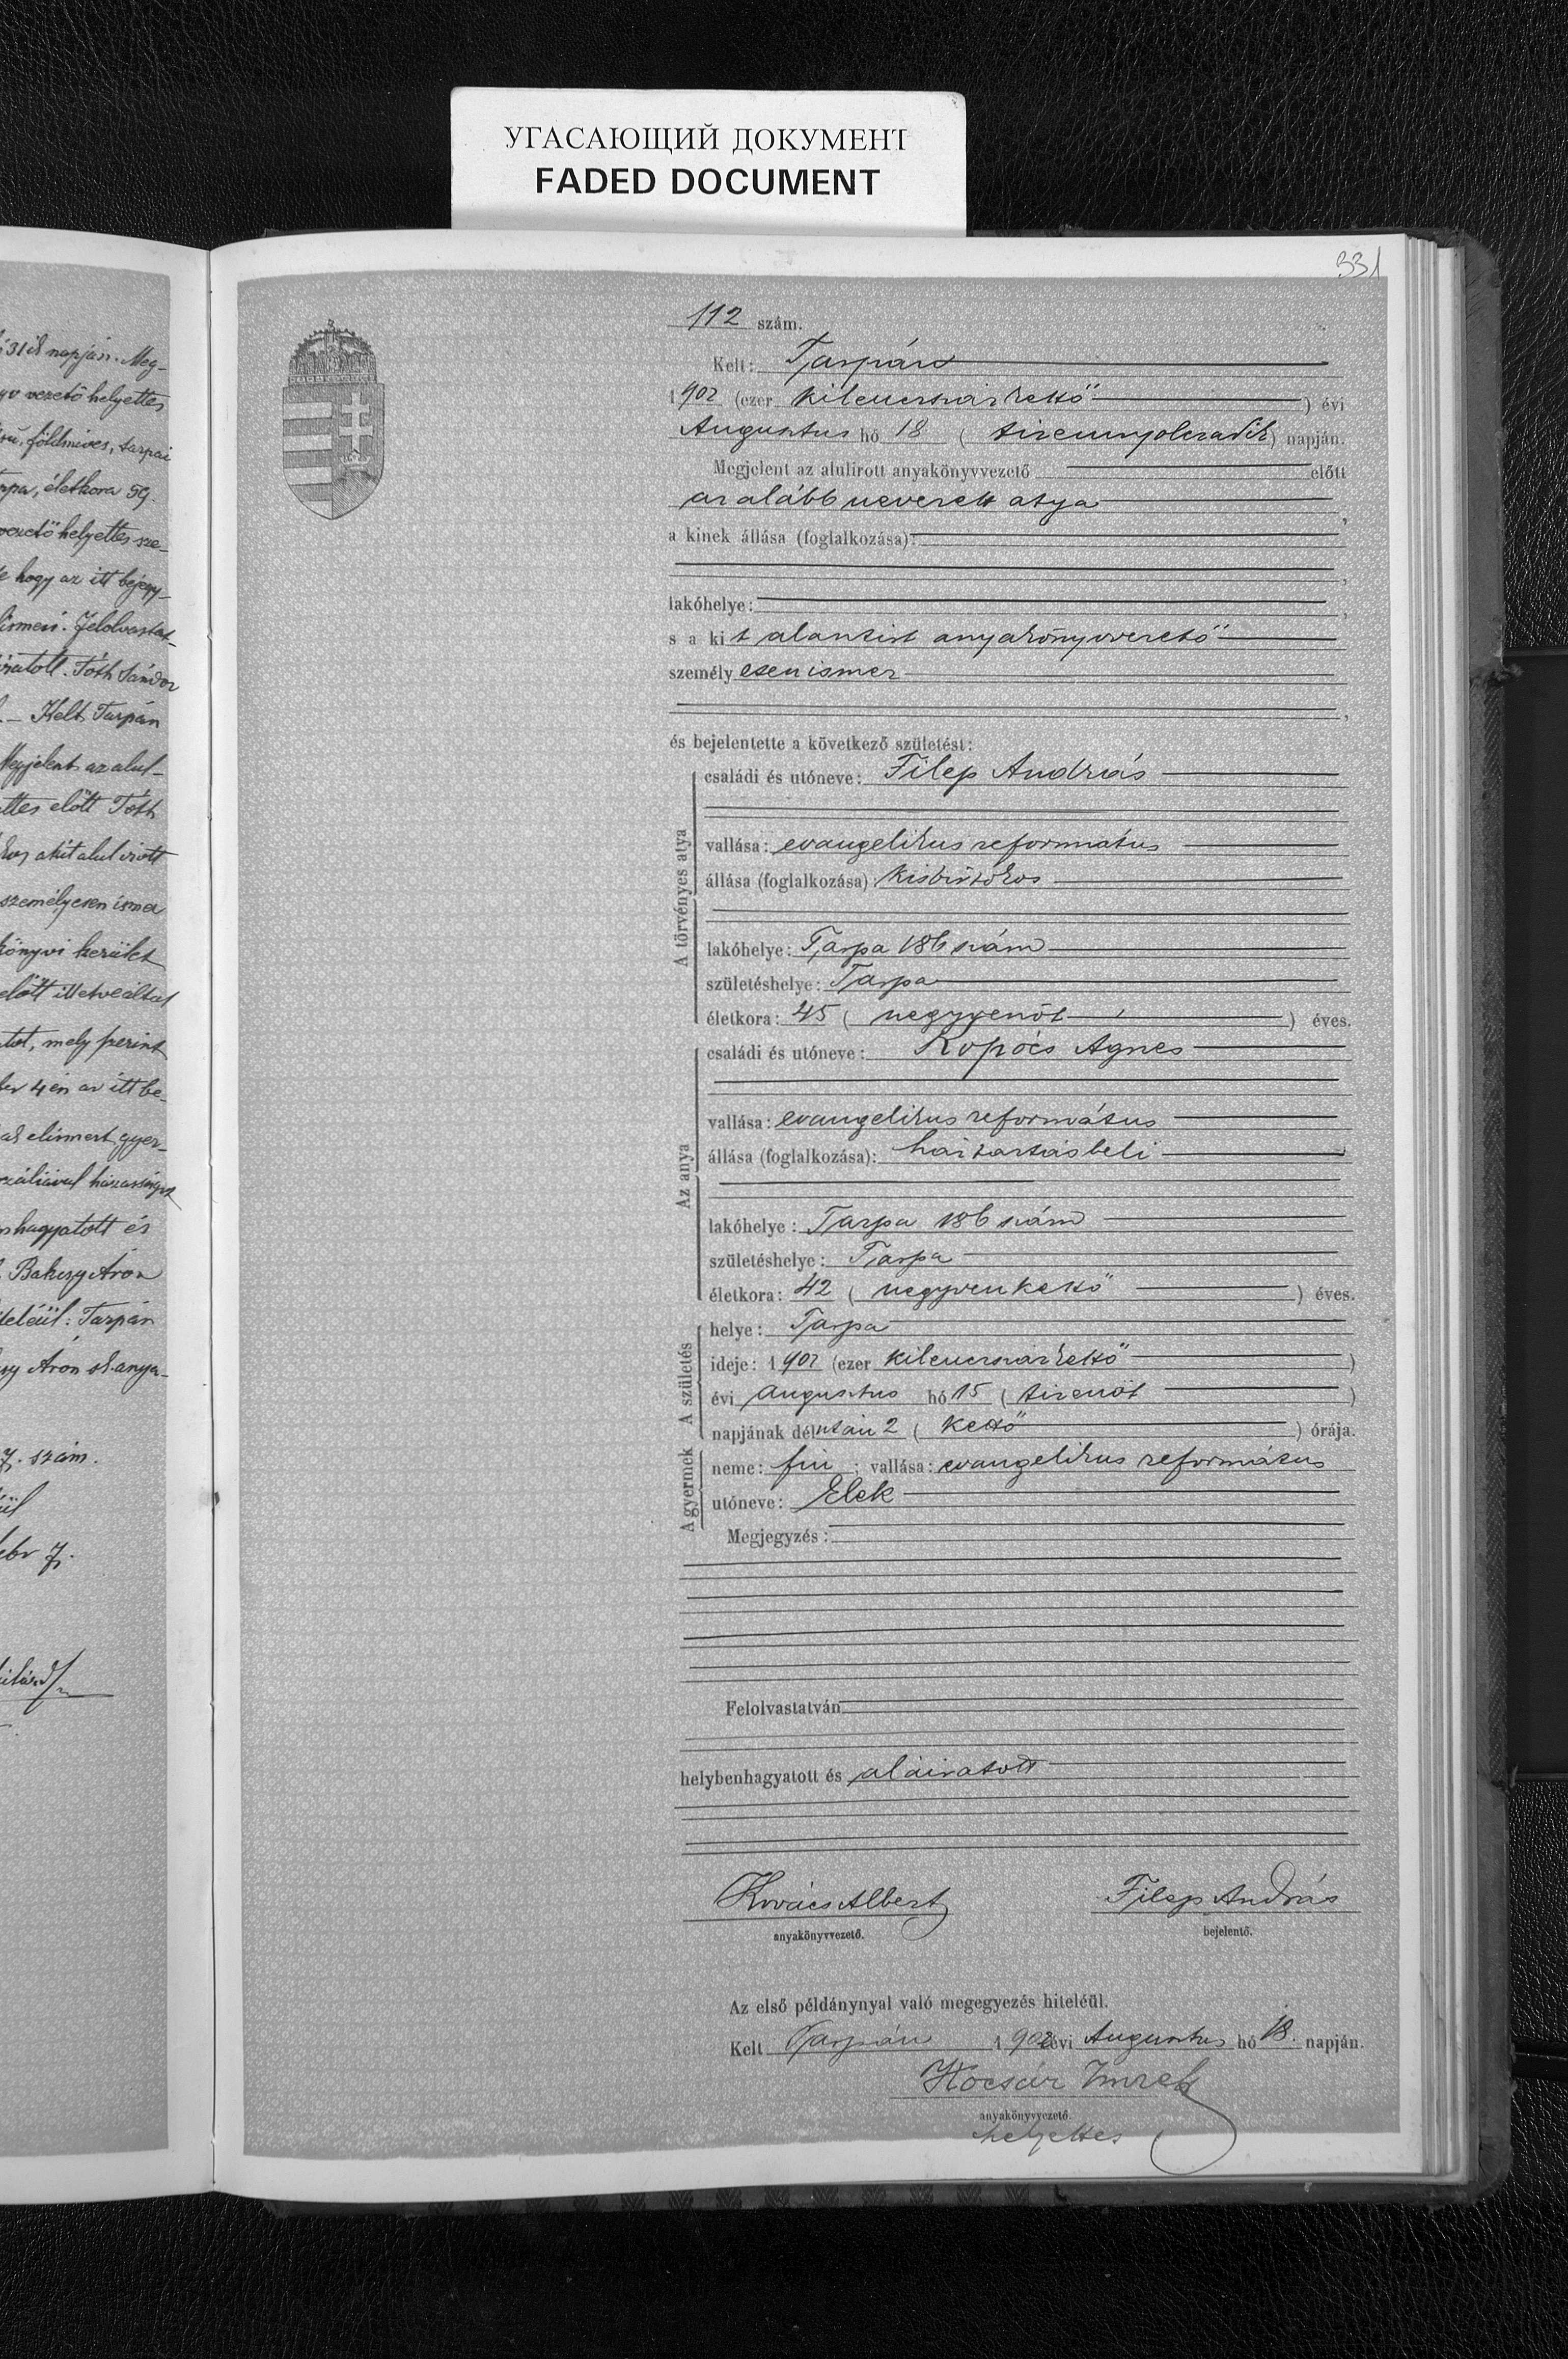 УГАСАЮЩИЙ ДОКУМЕНТ
FADED DOCUMENT
331
31ik napján. Meg-
vezető helyettes
földmíves, tarpai
életkora 59.
vezető helyettes sze-
hogy az itt bejegy-
Felolvastat-
Tóth Sándor
– Kelt Tarpán
Megjelent az alul-
előtt Tóth
akit alulirott
személyesen ismer
könyvi kerület
előtt illetve által
mely szerint
4én az itt be-
elismert gyer-
házasságot
helybenhagyatott és
Bakcsy Áron
hiteléül: Tarpán
Áron sk. anya-
7. szám.
112 szám.
Kelt: Tarpán
1902 (ezer kilencszázkettő) évi
Augusztus hó 18 (tizennyolczadik) napján.
Megjelent az alulirott anyakönyvvezető előtt
az alább nevezett atya,
a kinek állása (foglalkozása):
,
lakóhelye: ,
s a kit alantirt anyakönyvvezető
személyesen ismer
,
és bejelentette a következő születést:
A törvényes atya
családi és utóneve: Filep András
vallása: evangelikus református
állása (foglalkozása): kisbirtokos
lakóhelye: Tarpa 186 szám
születéshelye: Tarpa
életkora: 45 (negyvenöt) éves.
Az anya
családi és utóneve: Kopócs Ágnes
vallása: evangelikus református
állása (foglalkozása): háztartásbeli
lakóhelye: Tarpa 186 szám
születéshelye: Tarpa
életkora: 42 (negyvenkettő) éves.
A születés
helye: Tarpa
ideje: 1902 (ezer kilencszázkettő)
évi augusztus hó 15 (tizenöt)
napjának délután 2 (kettő) órája.
A gyermek
neme: fiu; vallása: evangelikus református
utóneve: Elek
Megjegyzés:
Felolvastatván
helybenhagyatott és aláiratott
Kovács Albert Filep András
anyakönyvvezető. bejelentő.
Az első példánynyal való megegyezés hiteléül.
Kelt Tarpán 1902 évi Augusztus hó 18. napján.
Kocsár Imre
anyakönyvvezető.
helyettes